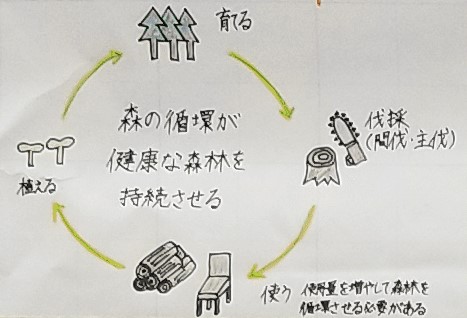 育てる
森の循環が
健康な森林を
持続させる
伐採
(間伐・主伐)
植える
使う
使用量を増やして森林を
循環させる必要がある